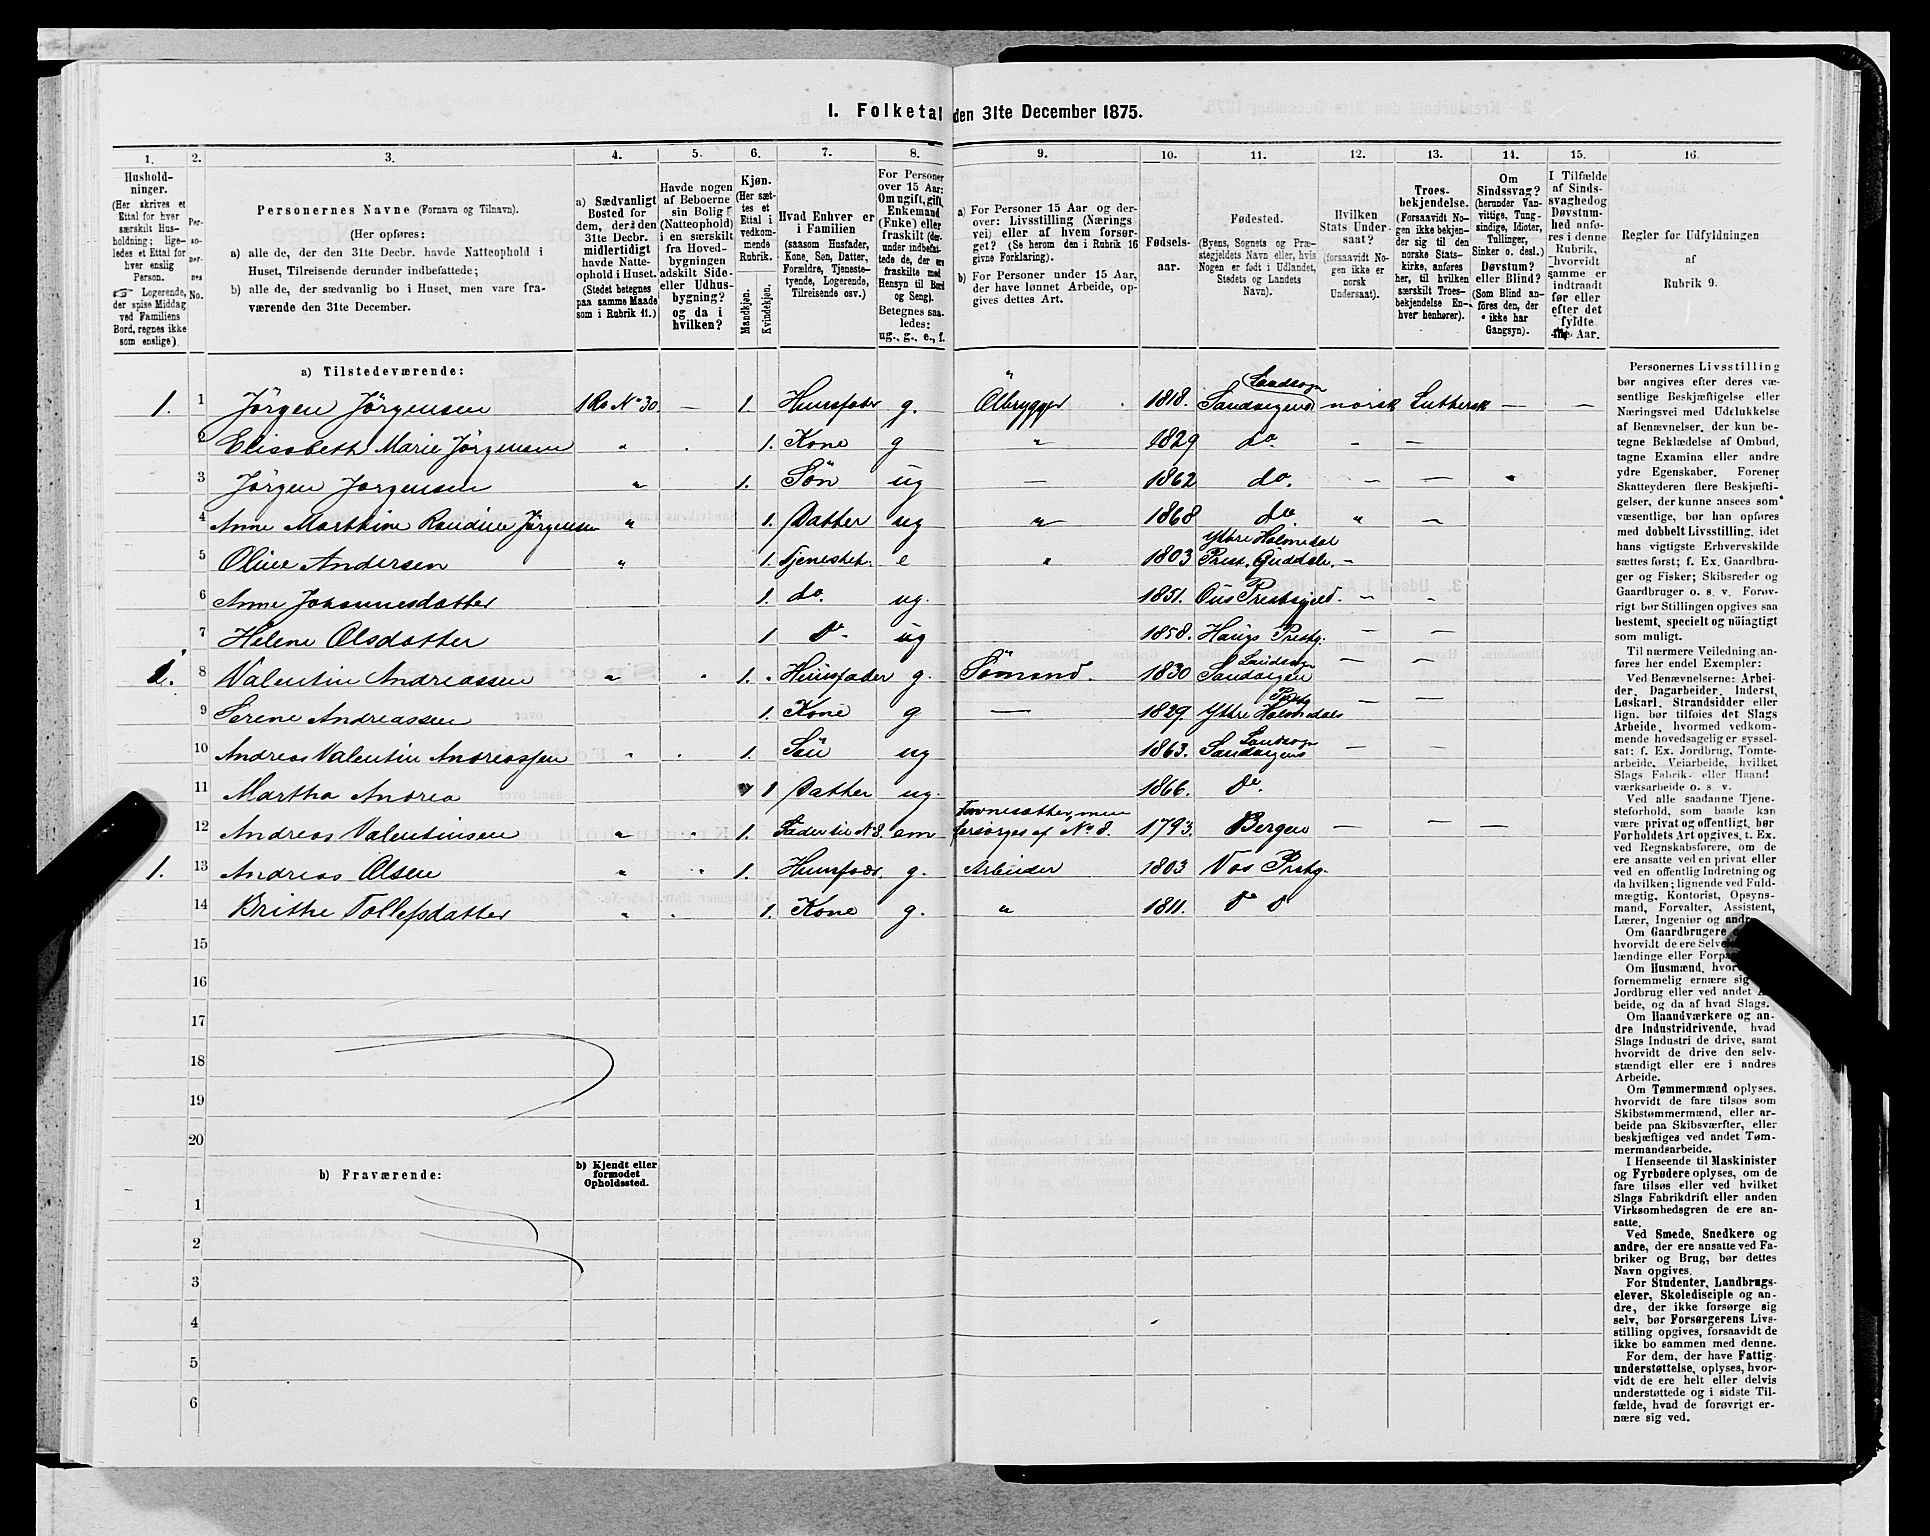 I. Folketal den 31te December 1875.
1. 2. 3. 4. 5. 6. 7. 8. 9. 10. 11. 12. 13. 14. 15. 16.
Hushold-
ninger.
(Her skrives et
Ettal for hver
særskilt Hus-
holdning; lige-
ledes et Ettal for
hver enslig
Person.
☞ Logerende,
der spise Middag
ved Familiens
Bord, regnes ikke
som enslige).
Per-
so-
ner-
nes
No.
Personernes Navne (Fornavn og Tilnavn).
(Her opføres:
a) alle de, der den 31te Decbr. havde Natteophold i
Huset, Tilreisende derunder indbefattede;
b) alle de, der sædvanlig bo i Huset, men vare fra-
værende den 31te December.
a) Sædvanligt
Bosted for
dem, der den
31te Decbr.
midlertidigt
havde Natte-
ophold i Huset.
(Stedet betegnes
paa samme Maade
som i Rubrik 11.)
Havde nogen
af Beboerne
sin Bolig
(Natteophold)
i en særskilt
fra Hoved-
bygningen
adskilt Side-
eller Udhus-
bygning?
og da i
hvilken?
Kjøn.
(Her sæt-
tes et
Ettal i
vedkom-
mende
Rubrik.
Mandkjøn.
Kvindekjøn.
Hvad Enhver er
i Familien
(saasom Husfader,
Kone, Søn, Datter,
Forældre, Tjeneste-
tyende, Logerende,
Tilreisende osv.)
For Personer
over 15 Aar:
Om ugift, gift,
Enkemand
(Enke) eller
fraskilt (der-
under indbefat-
tede de, der ere
fraskilte med
Hensyn til Bord
og Seng).
Betegnes saa-
ledes:
ug., g., e., f.
a) For Personer 15 Aar og der-
over: Livsstilling (Nærings
vei) eller af hvem forsør-
get? (Se herom den i Rubrik 16
givne Forklaring).
b) For Personer under 15 Aar,
der have lønnet Arbeide, op-
gives dettes Art.
Fødsels-
aar.
Fødested.
(Byens, Sognets og Præ-
stegjeldets Navn eller, hvis
Nogen er født i Udlandet,
Stedets og Landets
Navn).
Hvilken
Stats Under-
saat?
(forsaavidt No-
gen ikke er
norsk
Undersaat).
Troes-
bekjendelse.
(Forsaavidt No-
gen ikke bekjen-
der sig til den
norske Stats-
kirke, anføres
her, til hvilken
særskilt Troes-
bekjendelse En-
hver henhører).
Om
Sindssvag?
(herunder Van-
vittige, Tung-
sindige, Idioter,
Tullinger,
Sinker o. desl.)
Døvstum?
eller Blind?
(Som Blind an-
føres den, der
ikke har
Gangsyn).
I Tilfælde
af Sinds-
svaghed og
Døvstum-
hed anfø-
res i denne
Rubrik,
hvorvidt
samme er
indtraadt
før eller
efter det
fyldte
Aar.
Regler for Udfyldningen
af
Rubrik 9.
a) Tilstedeværende:
1. 1 Jørgen Jørgensen 1 Ro No 30. — 1. Huusfader g. Ölbrygger 1818. Sandvigens Landsogn norsk Luthersk — —
2 Elisabeth Marie Jørgensen " 1. Kone g " 1829 do. - —
3 Jørgen Jørgensen " 1. Søn ug — 1862 do. — —
4 Anne Marthine Randine Jørgensen " 1. Datter ug " 1868 do. " —
5 Oline Andersen " 1. Tjenestet. e " 1803 Yttre Holmedal Prest. Guddals —
6 Anne Johannesdatter 1. do. ug. 1851. Ous Prestegjeld. - -
7 Helene Olsdatter 1 Do. ug 1858. Haugs Prestg. — —
1. 8 Valentin Andreassen " " 1. Huusfader g. Sömand. 1830 Sandvigen Landsogn — —
9 Serene Andreassen 1. Kone g — 1829. Yttre Holmedals Prstg —
10 Andreas Valentin Andreassen " 1. Søn ug 1863. Sandvigens Landsogn — —
11 Martha Andrea 1 Datter ug. 1866. Do.
12 Andreas Valentinsen " " 1. Fader til No 8. em forsørges af No 8. 1793. Bergen — — —
1. 13 Andreas Olsen " " 1. Huusfader. g. Arbeider 1803 Vos Prstg.
14 Brithe Tollefsdatter " 1. Kone g. " 1811. Do Do
15
16
17
18
19
20
b) Fraværende:
b) Kjendt eller
formodet
Opholdssted.
1
2
3
4
5
6
Personernes Livsstilling
bør angives efter deres væ-
sentlige Beskjæftigelse eller
Næringsvei med Udelukkelse
af Benævnelser, der kun be-
tegne Beklædelse af Ombud,
tagne Examina eller andre
ydre Egenskaber. Forener
Skatteyderen flere Beskjæfti-
gelser, der kunne ansees som
væsentlige, bør han opføres
med dobbelt Livsstilling, idet
hans vigtigste Erhvervskilde
sættes først; f. Ex. Gaardbru-
ger og Fisker; Skibsreder og
Gaardbruger o. s. v. Forøv-
rigt bør Stillingen opgives saa
bestemt, specielt og nöiagtigt
som muligt.
Til nærmere Veiledning an-
føres her endel Exempler:
Ved Benævnelserne: Arbei-
der, Dagarbeider, Inderst,
Løskarl, Strandsidder eller
lign. bør tilføies det Slags
Arbeide, hvormed vedkom-
mende hovedsagelig er syssel-
sat: f. Ex. Jordbrug, Tomte-
arbeide, Veiarbeide, hvilket
Slags Fabrik- eller Haand
værksarbeide o. s. v.
Ved alle saadanne Tjene-
steforhold, som baade kan
være privat og offentligt, bør
Forholdets Art opgives, t. Ex.
ved Regnskabsførere, om de
ere ansatte ved en privat eller
ved en offentlig Indretning og
da hvilken; lignende ved Fuld-
mægtig, Kontorist, Opsyns-
mand, Forvalter, Assistent,
Lærer, Ingeniør og andre.
Om Gaardbrugere
hvorvidt de ere Selve
lændinge eller Forpa
Om Husmænd, hvor
fornemmelig ernære sig
Jordbrug eller ved andet Ar-
beide, og da af hvad Slags.
Om Haandværkere og an-
dre Industridrivende, hvad
Slags Industri de drive, samt
hvorvidt de drive den selv-
stændigt eller ere i andres
Arbeide.
Om Tømmermænd oplyses,
hvorvidt de fare tilsøs som
Skibstømmermænd, eller ar-
beide paa Skibsværfter, eller
beskjæftiges ved andet Tøm-
mermandsarbeide.
I Henseende til Maskinister
og Fyrbødere oplyses, om de
fare tilsøs eller ved hvilket
Slags Fabrikdrift eller anden
Virksomhedsgren de ere an-
satte.
Ved Smede, Snedkere og
andre, der ere ansatte ved Fa-
briker og Brug, bør dettes
Navn opgives.
For Studenter, Landbrugs-
elever, Skoledisciple og an-
dre, der ikke forsørge sig
selv, bør Forsørgerens Livs-
stilling opgives, forsaavidt de
ikke bo sammen med denne.
For dem, der have Fattig-
understøttelse, oplyses, hvor-
vidt de ere helt eller delvis
understøttede og i sidste Til-
fælde, hvad de forøvrigt er-
nære sig ved.